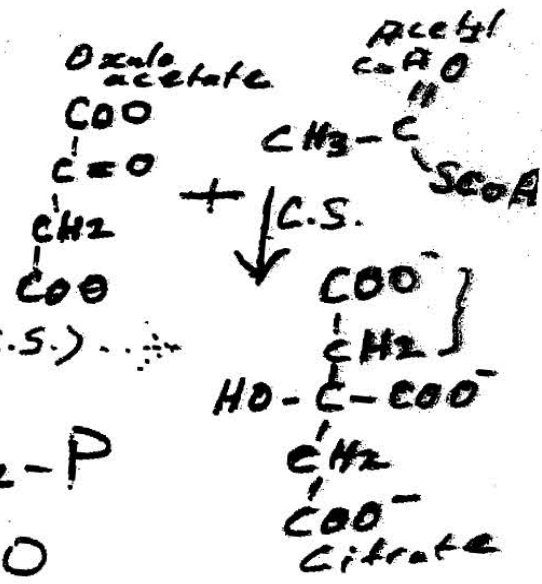 Oxalo
acetate
COO
C=O
CH2
COO
+
Acetyl
CoA O
CH3-C
SCoA
C.S.
.S.)...
COO-
CH2
HO-C-COO-
CH2
COO-
Citrate
-P
O